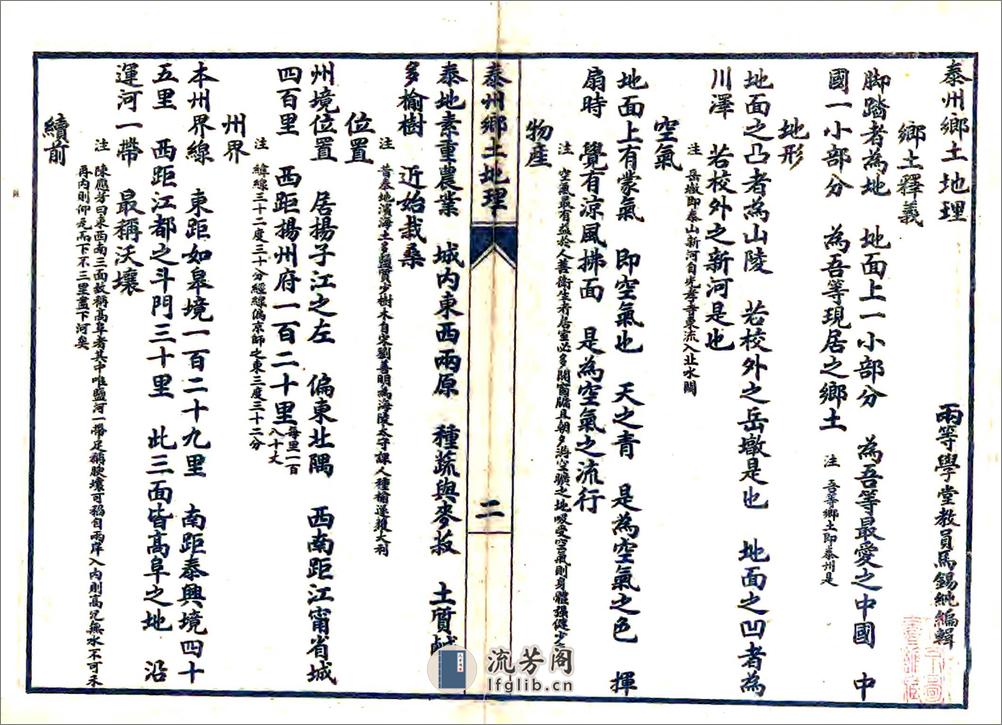 泰州鄉土地理　兩等學堂教員馬錫純編輯
鄉土釋義
脚踏者為地　地面上一小部分　為吾等最愛之中國　中
國一小部分　為吾等現居之鄉土　注　吾等鄉土即泰州是
地形
地面之凸者為山陵　若校外之岳墩是也　地面之凹者為
川澤　若校外之新河是也
注　岳墩即泰山新河自光孝寺東流入北水關
空氣
地面上有蒙氣　即空氣也　天之青　是為空氣之色　揮
扇時　覺有涼風拂面　是為空氣之流行
注　空氣最有益於人善衛生者居室必多開窗牖且朝夕游空曠之地吸受空氣則身體強健少
物產
泰州鄉土地理
二
泰地素重農業　城内東西兩原　種蔬與麥菽　土質鹹
多榆樹　近始栽桑
注　昔泰地濱海土多鹽質少樹木自宋劉善明為海陵太守課人種榆遂獲大利
位置
州境位置　居揚子江之左　偏東北隅　西南距江甯省城
四百里　西距揚州府一百二十里每里一百八十丈
注　緯線三十二度三十分經線偏京師之東三度三十二分
州界
本州界線　東距如皋境一百二十九里　南距泰興境四十
五里　西距江都之斗門三十里　此三面皆高阜之地　沿
運河一帶　最稱沃壤
注　陳應芳曰東西南三面故稱高阜者其中唯鹽河一帶足稱腴壤可稻自兩岸入内則高兀無水不可禾
再内則仰瓦而下不三里盡下河矣
續前
流芳阁
lfglib.cn